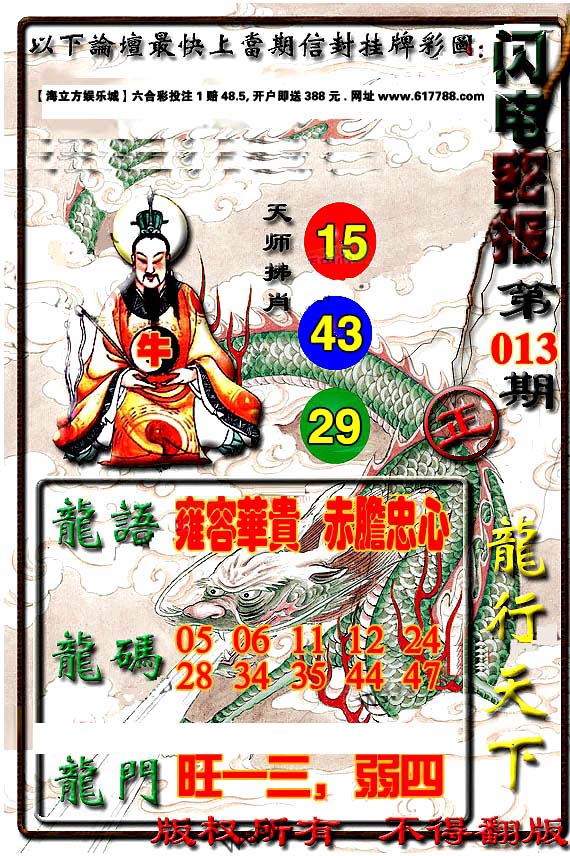 以下論壇最快上當期信封挂牌彩圖:
【海立方娱乐城】六合彩投注 1 赔 48.5, 开户即送 388 元 . 网址 www.617788.com
闪电密报
第
013
期
天师拂肖
15
43
29
牛
正
龍語 雍容華貴 赤膽忠心
龍碼 05 06 11 12 24
28 34 35 44 47
龍門 旺一三，弱四
龍行天下
版权所有 不得翻版